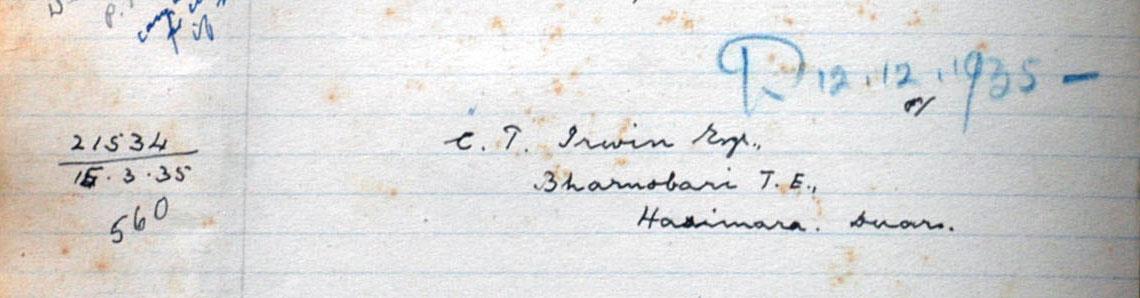 R 12.12.1935 -
21534
15.3.35
560
C. T. Irwin Esqr.,
Bharnobari T. E.,
Hasimara. Duars.